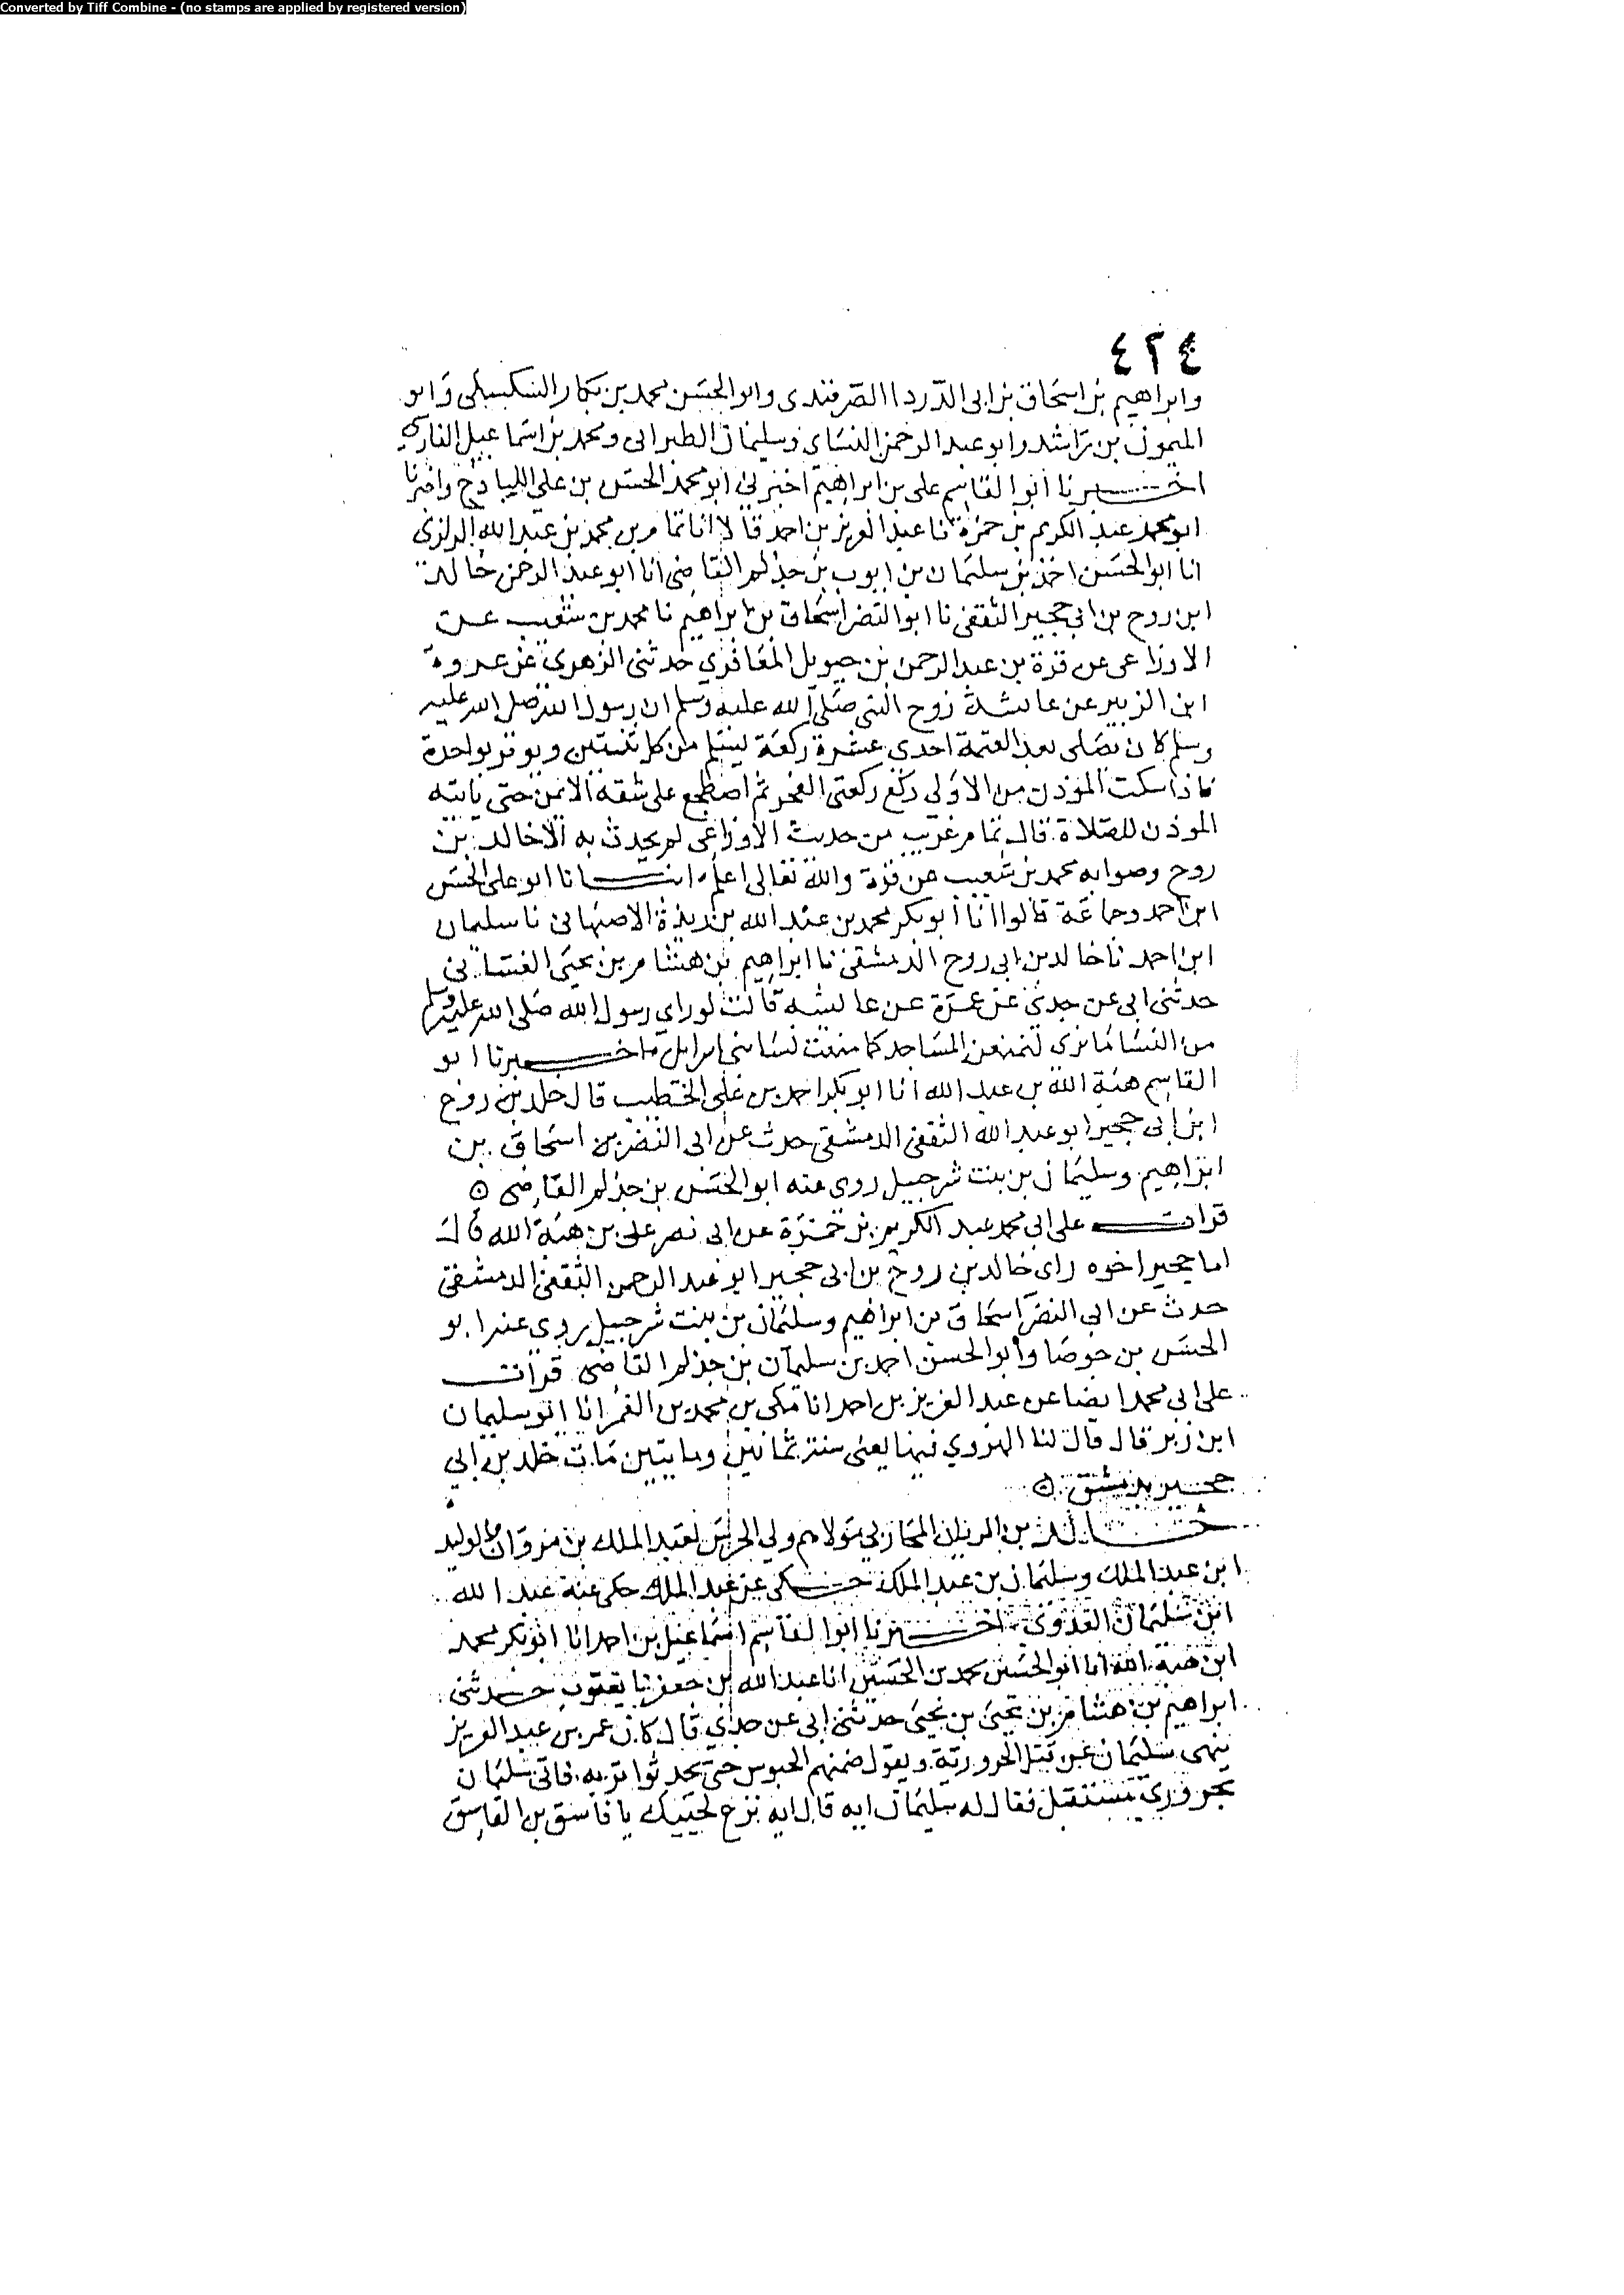 Converted by Tiff Combine - (no stamps are applied by registered version)
٤٢٤
وابراهيم بن اسحاق بن ابى الدرداا الصرفندى وابو الحسن محمد بن بكار السكسكى وابو
الميمون بن راشد وابو عبد الرحمن النساى وسليمان الطبرانى ومحمد بن اسماعيل الفارسى
اخبرنا أبوا القاسم على بن ابراهيم اخبرنى ابو محمد الحسن بن على اللباد ح واخبرنا
ابو محمد عبد الكريم بن حمزة نا عبد العزيز بن احمد قالا انا تمام بن محمد بن عبد الله الرازى
انا ابو الحسن احمد بن سليمان بن ايوب بن حذلم القاضى انا ابو عبد الرحمن خالد
ابن روح بن ابى حجير الثقفى نا ابو النضر اسحاق بن ابراهيم نا محمد بن شعيب عن
الاوزاعى عن قرة بن عبد الرحمن بن حيويل المعافرى حدثنى الزهرى عن عروة
ابن الزبير عن عايشة زوج النبى صلى الله عليه وسلم ان رسول الله صلى الله عليه
وسلم كان يصلى بعد العتمة احدى عشرة ركعة يسلم من كل ثنتين ويوتر بواحدة
فاذا سكت الموذن من الاولى ركع ركعتى الفجر ثم اضطجع على شقه الايمن حتى ياتيه
الموذن للصلاة قال تمام غريب من حديث الاوزاعى لم يحدث به الا خالد بن
روح وصوابه محمد بن شعيب عن قرة والله تعالى اعلم انبانا ابو على الحسن
ابن احمد وجماعة قالوا انا أبو بكر محمد بن عبد الله بن ريذة الاصبهانى نا سليمان
ابن احمد نا خالد بن ابى روح الدمشقى نا ابراهيم بن هشام بن يحيى الغسانى
حدثنى ابى عن جدى عن عمرة عن عايشة قالت لو راي رسول الله صلى الله عليه وسلم
من النسا ما نرى لمنعهن المساجد كما منعت نسا بنى اسرايل اخبرنا ابو
القاسم هبة الله بن عبد الله انا ابو بكر احمد بن على الخطيب قال خلد بن روح
ابن ابى حجير ابو عبد الله الثقفى الدمشقى حدث عن ابى النضر بن اسحاق بن
ابراهيم وسليمان بن بنت شرحبيل روى عنه ابو الحسن بن حذلم القاضى ه
قرات على ابى محمد عبد الكريم بن حمزة عن ابى نصر على بن هبة الله قال
اما حجير اخوه راى خالد بن روح بن ابى حجير ابو عبد الرحمن الثقفى الدمشقى
حدث عن ابى النضر اسحاق بن ابراهيم وسليمان بن بنت شرحبيل روى عنه ابو
الحسن بن جوصا وأبو الحسن احمد بن سليمان بن حذلم القاضى قرات
على ابى محمد ايضا عن عبد العزيز بن احمد انا مكى بن محمد بن الغمر انا ابو سليمان
ابن زبر قال قال لنا الهروي فيها يعنى سنة ثمانين ومايتين مات خلد بن ابي
حجير بدمشق ه
خالد بن الريان المحاربي مولاهم ولي الحرس لعبد الملك بن مروان والوليد
ابن عبد الملك وسليمان بن عبد الملك حكى عن عبد الملك حكى عنه عبد الله
ابن سليمان العدوى اخبرنا ابوا القاسم اسماعيل بن احمد انا ابو بكر محمد
ابن هبة الله انا ابو الحسين محمد بن الحسين انا عبد الله بن جعفر نا يعقوب حدثنى
ابراهيم بن هشام بن يحيى بن يحيى حدثنى ابى عن جدي قال كان عمر بن عبد العزيز
ينهى سليمان عن قتل الحرورية ويقول ضمنهم الحبوس حتى يحدثوا توبه فاتى سليمان
بحروري مستقتل فقال له سليمان ايه قال ايه نزع لحييك يا فاسق بن الفاسق